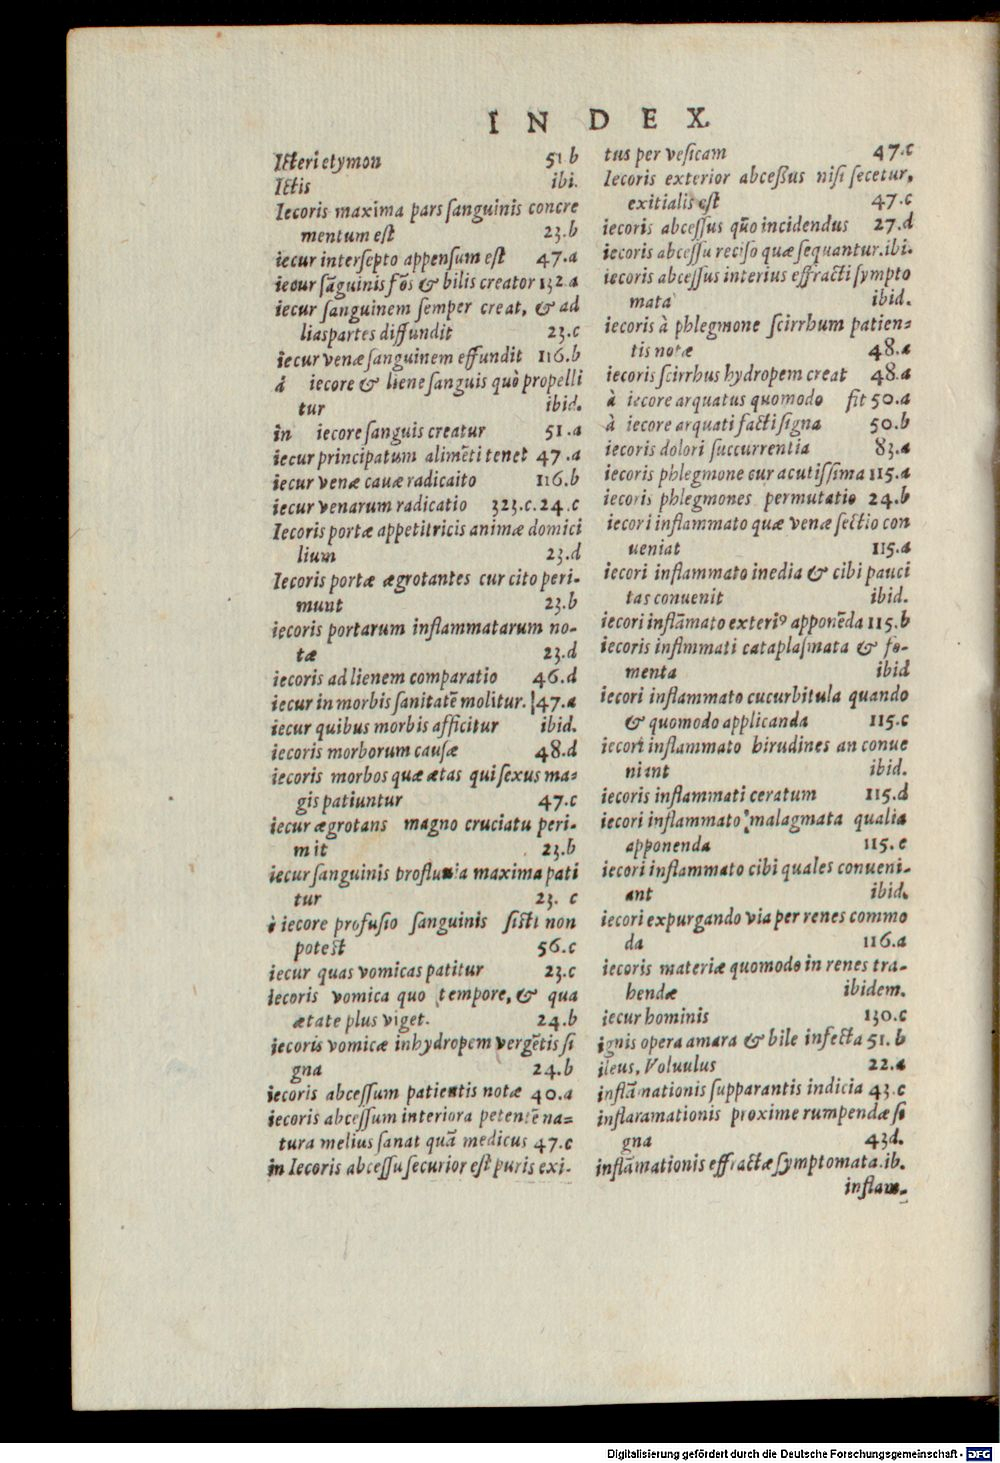 INDEX.
Icteri etymon 51 b
Ictis ibi.
Iecoris maxima pars ſanguinis concre
mentum eſt 23.b
iecur interſepto appenſum eſt 47.a
iecur ſãguinis fõs & bilis creator 132 a
iecur ſanguinem ſemper creat, & ad
lias partes diffundit 23.c
iecur venæ ſanguinem effundit 116.b
á iecore & liene ſanguis quò propelli
tur ibid.
in iecore ſanguis creatur 51.a
iecur principatum alimẽti tenet 47.a
iecur venæ cauæ radicaito 116.b
iecur venarum radicatio 323.c.24.c
Iecoris portæ appetitricis animæ domici
lium 23.d
Iecoris portæ ægrotantes cur cito peri-
munt 23.b
iecoris portarum inflammatarum no-
tæ 23.d
iecoris ad lienem comparatio 46.d
iecur in morbis ſanitatẽ molitur. 47.a
iecur quibus morbis afficitur ibid.
iecoris morborum cauſæ 48.d
iecoris morbos quæ ætas qui ſexus ma-
gis patiuntur 47.c
iecur ægrotans magno cruciatu peri-
mit 23.b
iecur ſanguinis profluuia maxima pati
tur 23. c
è iecore profuſio ſanguinis ſiſti non
poteſt 56.c
iecur quas vomicas patitur 23.c
Iecoris vomica quo tempore, & qua
ætate plus viget. 24.b
iecoris vomicæ in hydropem vergẽtis ſi
gna 24.b
iecoris abceſſum patientis notæ 40.a
iecoris abceſſum interiora petentẽ na-
tura melius ſanat quã medicus 47.c
in Iecoris abceſſu ſecurior eſt puris exi-
tus per veſicam 47.c
Iecoris exterior abceßus niſi ſecetur,
exitialis eſt 47.c
iecoris abceſſus quõ incidendus 27.d
iecoris abceſſu reciſo quæ ſequantur.ibi.
iecoris abceſſus interius effracti ſympto
mata ibid.
iecoris à phlegmone ſcirrhum patien-
tis notæ 48.a
iecoris ſcirrhus hydropem creat 48.a
à iecore arquatus quomodo fit 50.a
à iecore arquati facti ſigna 50.b
iecoris dolori ſuccurrentia 83.a
iecoris phlegmone cur acutiſſima 115.a
iecoris phlegmones permutatio 24.b
iecori inflammato quæ venæ ſectio con
ueniat 115.a
iecori inflammato inedia & cibi pauci
tas conuenit ibid.
iecori inflãmato exteriꝰ apponẽda 115.b
iecoris inflmmati cataplaſmata & fo-
menta ibid
iecori inflammato cucurbitula quando
& quomodo applicanda 115.c
iecori inflammato hirudines an conue
niant ibid.
iecoris inflammati ceratum 115.d
iecori inflammato malagmata qualia
apponenda 115.e
iecori inflammato cibi quales conueni-
ant ibid.
iecori expurgando via per renes commo
da 116.a
iecoris materiæ quomodo in renes tra-
hendæ ibidem.
iecur hominis 130.c
ignis opera amara & bile infecta 51. b
ileus, Voluulus 22.a
inflãmationis ſupparantis indicia 43.c
inflaramationis proxime rumpendæ ſi
gna 43d.
inflãmationis effractæ ſymptomata.ib.
inflam-
Digitalisierung gefördert durch die Deutsche Forschungsgemeinschaft - DFG